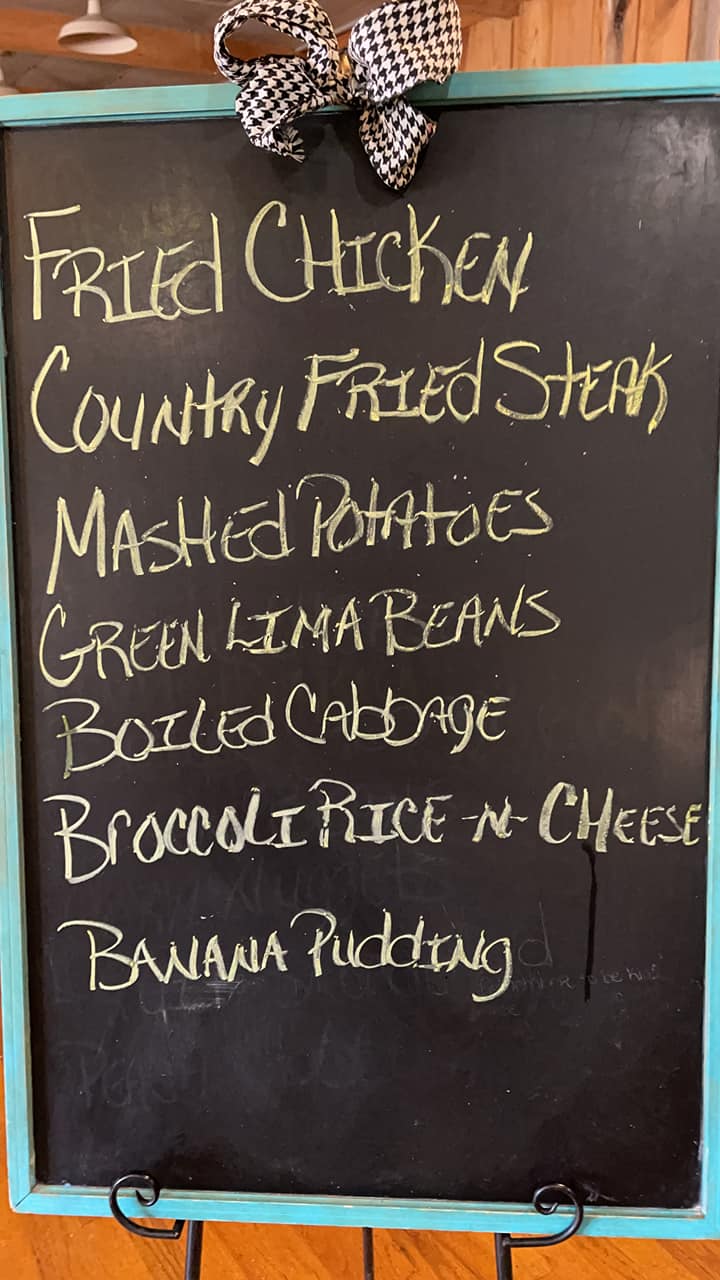 Fried Chicken
Country Fried Steak
Mashed Potatoes
Green Lima Beans
Boiled Cabbage
Broccoli Rice -N- Cheese
Banana Pudding